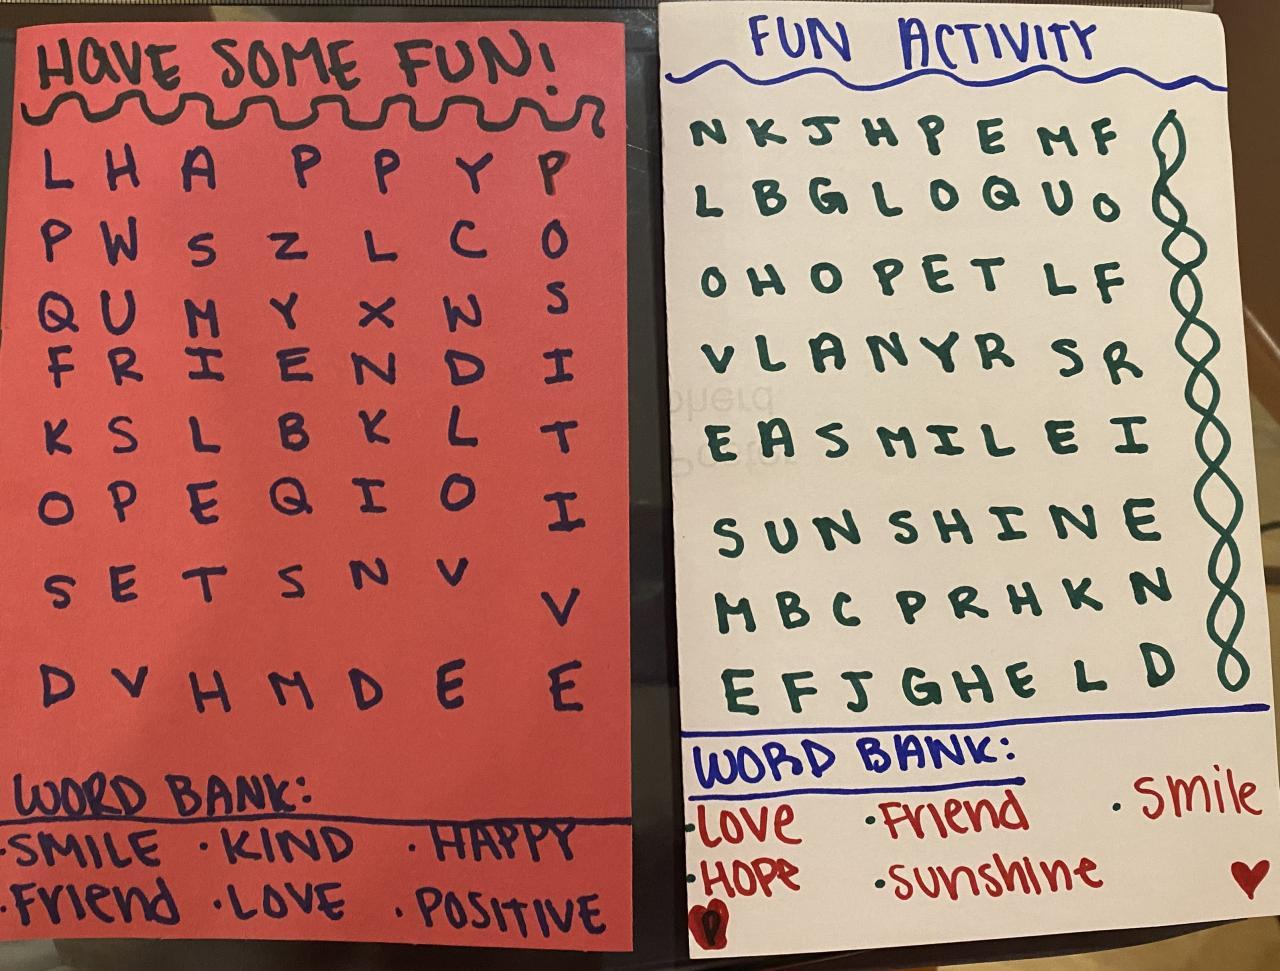 HAVE SOME FUN!
L H A P P Y P
P W S Z L C O
Q U M Y X W S
F R I E N D I
K S L B K L T
O P E Q I O I
S E T S N V V
D V H M D E E
WORD BANK:
·SMILE ·KIND ·HAPPY
·Friend ·LOVE ·POSITIVE
FUN ACTIVITY
N K J H P E M F
L B G L O Q U O
O H O P E T L F
V L A N Y R S R
E A S M I L E I
S U N S H I N E
M B C P R H K N
E F J G H E L D
WORD BANK:
·Love ·Friend ·Smile
·HOPe ·sunshine
P